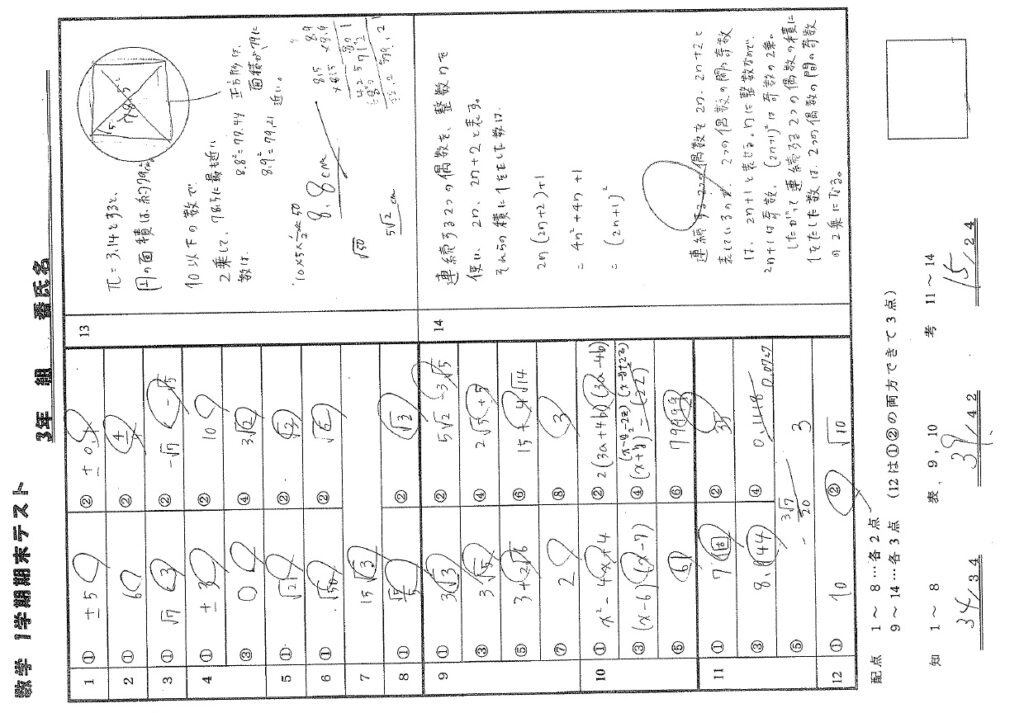 数学 1学期期末テスト
3年 組 番氏名
1 ① ±5 ② ±0.4
2 ① 6 ②
3 ① √7 3 ② -√7 -√5
4 ① ±3 ② 10
③ 0 ④ 3√2
5 ① √21 ② √2
6 ① √50 ② √6
7 15√3
8 ① ② √3
9 ① 3√3 ② 5√2 -3√5
③ 3√5 ④ 2√3+5
⑤ 3+2√6 ⑥ 15+4√14
⑦ 2 ⑧ 3
10 ① x²-4x+4 ② 2(3a+4b)(3a-4b)
③ (x-6)(x-7) ④
⑤ 61 ⑥
11 ① 7 ② 35
③ 8.144 ④ 0.0727
⑤ 3√7/20 3
12 ① 10 ② √10
13
π=3.14とすると、
円の面積は、約79cm²
10以下の数で
2乗して、78.5に最も近い
数は、
8.8²=77.44
8.9²=79.21
正方形は、
面積が79に
近い。
8.8cm
√50
5√2 cm
14
連続する2つの偶数を、整数nを
使い、2n、2n+2と表す。
それらの積に1をたした数は、
2n(2n+2)+1
= 4n²+4n+1
= (2n+1)²
連続する2つの偶数を2n、2n+2と
表しているので、2つの偶数の間の奇数
は、2n+1と表せる。nは整数なので、
2n+1は奇数、(2n+1)²は奇数の2乗。
したがって連続する2つの偶数の積に
1をたした数は、2つの偶数の間の奇数
の2乗になる。
配点 1～8…各2点
9～14…各3点 (12は①②の両方できて3点)
知 1～8 表、9，10 考 11～14
34/34 39/42 15/24